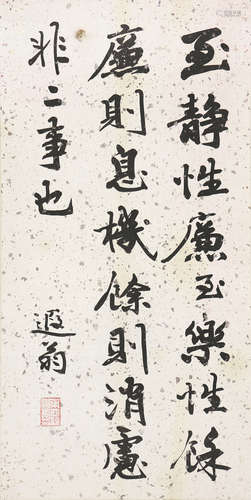 至静性廉至樂性餘
廉則息機餘則消慮
非二事也
遐翁